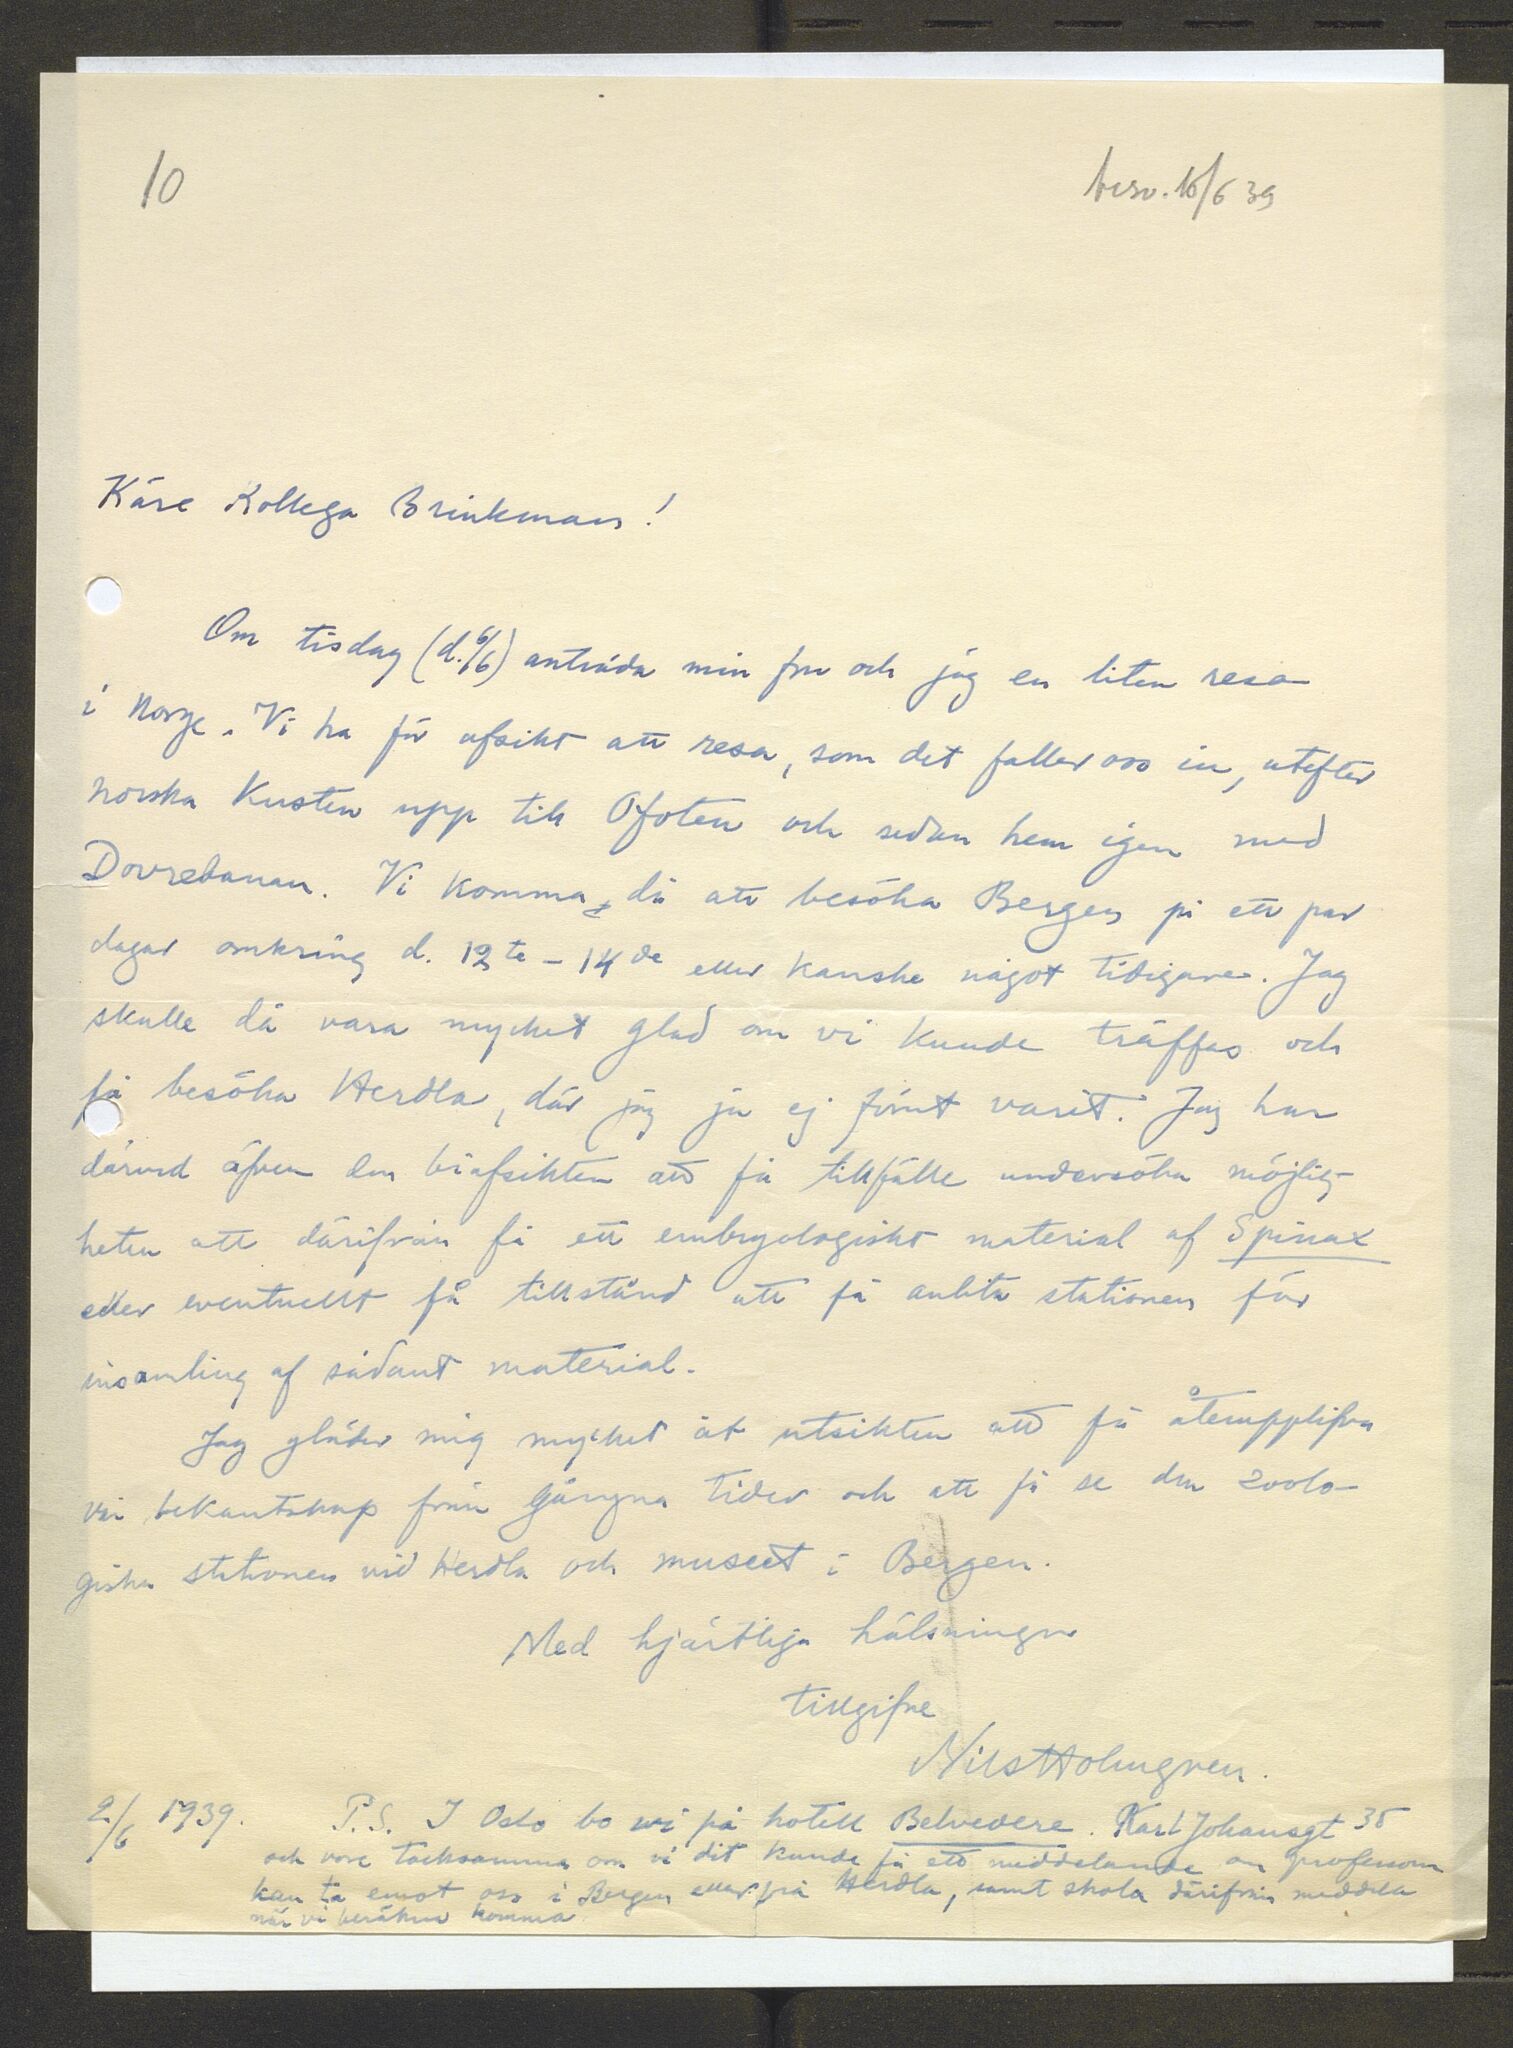 10
besv. 16/6 39
Käre Kollega Brinkmann!
Om tisdag (d. 6/6) anträda min fru och jag en liten resa
i Norge. Vi ha för afsikt att resa, som det faller oss in, utefter
norska Kusten upp till Ofoten och sedan hem igen med
Dovrebanan. Vi komma då att besöka Bergen på ett par
dagar omkring d. 12te - 14de eller kanske något tidigare. Jag
skulle då vara mycket glad om vi kunde träffas och
få besöka Herdla, där jag ju ej förut varit. Jag har
därvid äfven den biafsikten att få tillfälle undersöka möjlig-
heten att därifrån få ett embryologiskt material af Spinax
eller eventuellt få tillstånd att få anlita stationen för
insamling af sådant material.
Jag gläder mig mycket åt utsikten att få återupplifva
vår bekantskap från gångna tider och att få se den zoolo-
giska stationen vid Herdla och museet i Bergen.
Med hjärtliga hälsningar
tillgifne
Nils Holmgren.
2/6 1939. P.S. I Oslo bo vi på hotell Belvedere. Karl Johansgt 35
och vore tacksamma om vi dit kunde få ett meddelande om professorn
kan ta emot oss i Bergen eller på Herdla, samt skola därifrån meddela
när vi beräkna komma.